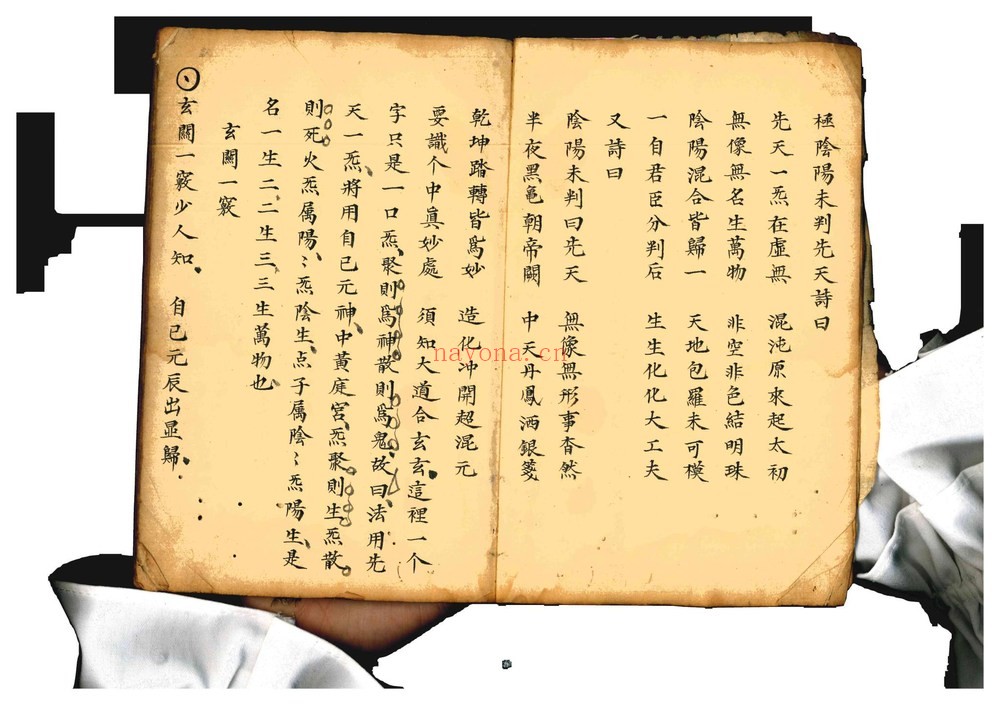 極陰陽未判先天詩曰
先天一炁在虛無 混沌原來起太初
無像無名生萬物 非空非色結明珠
陰陽混合皆歸一 天地包羅未可模
一自君臣分判后 生生化化大工夫
又詩曰
陰陽未判曰先天 無像無形事杳然
半夜黑龜朝帝闕 中天丹鳳洒銀箋
乾坤踏轉皆爲妙 造化冲開超混元
要識个中眞妙處 須知大道合玄玄這裡一个
字只是一口炁聚則爲神散則爲鬼故曰法用先
天一炁將用自己元神中黃庭宮炁聚則生炁散
則死火炁属陽〻炁陰生点子属陰〻炁陽生是
名一生二二生三三生萬物也
玄關一竅
玄關一竅少人知 自己元辰出显歸
nayona.cn